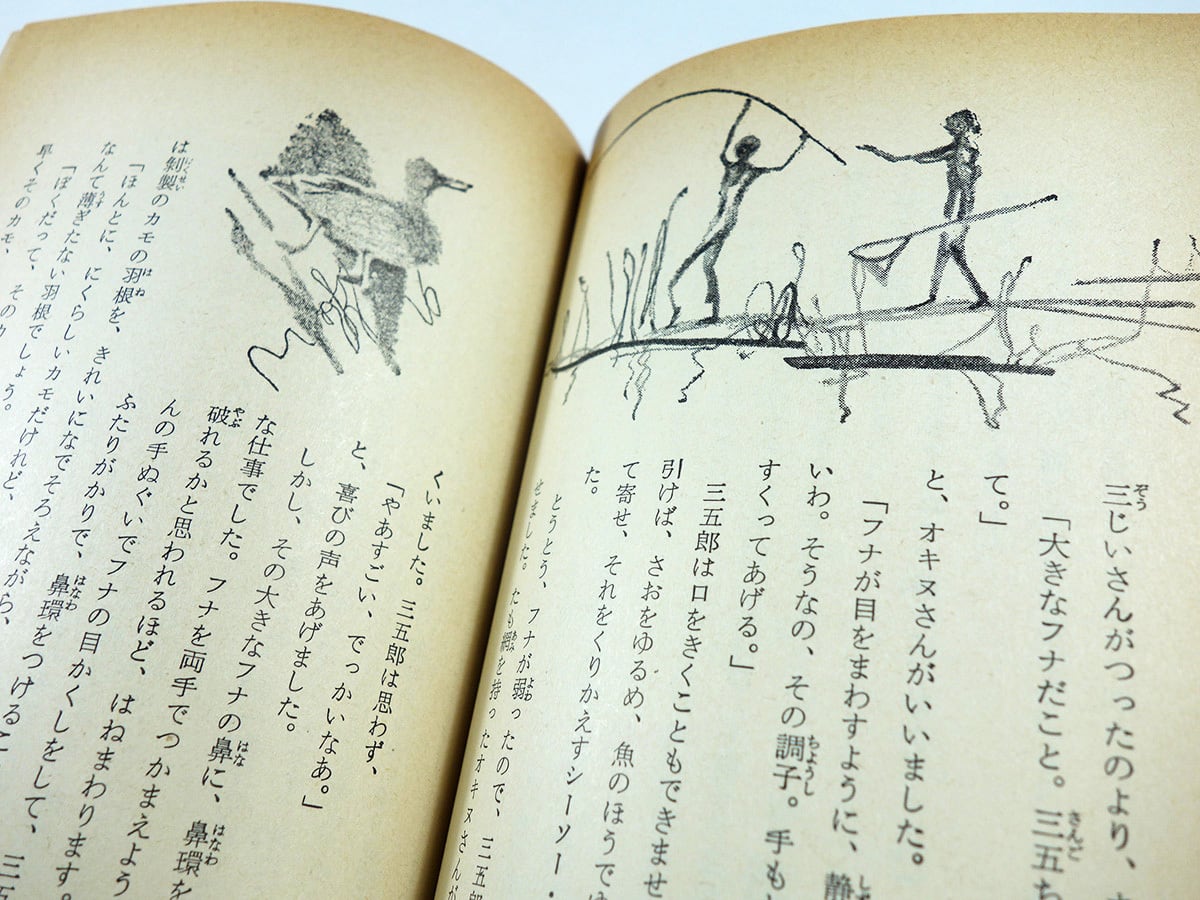 ぞう
三じいさんがつったのより、
さんご
「大きなフナだこと。三五ち
て。」
と、オキヌさんがいいました。
「フナが目をまわすように、静
いわ。そうなの、その調子。手も
ちょうし
すくってあげる。」
三五郎は口をきくこともできませ
引けば、さおをゆるめ、魚のほうでゆ
て寄せ、それをくりかえすシーソー・
た。
とうとう、フナが弱ったので、三五郎
よわ
せました。たも網を持ったオキヌさんが
あみ
くいました。三五郎は思わず、
「やあすごい、でっかいなあ。」
と、喜びの声をあげました。
しかし、その大きなフナの鼻に、鼻環を
はな
はなわ
な仕事でした。フナを両手でつかまえよう
破れるかと思われるほど、はねまわります。
やぶ
んの手ぬぐいでフナの目かくしをして、三
ふたりがかりで、鼻環をつけるこ
はなわ
は剝製のカモの羽根を、きれいになでそろえながら、
はくせい
はね
「ほんとに、にくらしいカモだけれど、
なんて薄ぎたない羽根でしょう。
うす
「ぼくだって、そのカ
早くそのカモ、